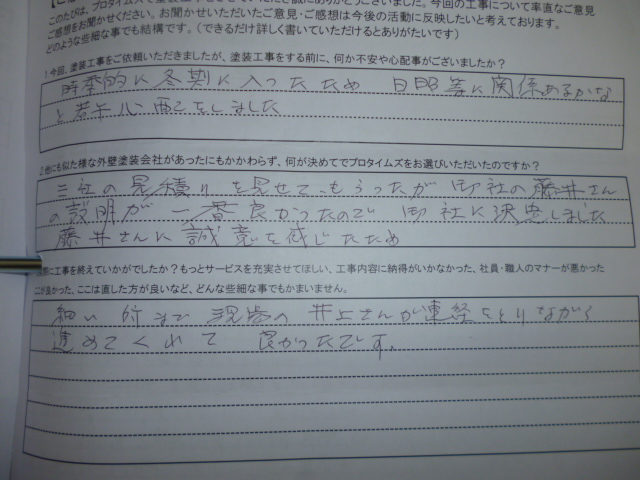 このたびは、プロタイムズで塗装工事をさせていただき誠にありがとうございました。今回の工事について率直なご意見
ご感想をお聞かせください。お聞かせいただいたご意見・ご感想は今後の活動に反映したいと考えております。
どのような些細な事でも結構です。（できるだけ詳しく書いていただけるとありがたいです）
1.今回、塗装工事をご依頼いただきましたが、塗装工事をする前に、何か不安や心配事がございましたか？
時季的に冬期に入ったため 日照等に関係あるかな
と若干心配をしました
2.他にも似た様な外壁塗装会社があったにもかかわらず、何が決めてでプロタイムズをお選びいただいたのですか？
三社の見積りを見せてもらったが 御社の藤井さん
の説明が 一番良かったので 御社に決定しました
藤井さんに誠意を感じたため
際に工事を終えていかがでしたか？もっとサービスを充実させてほしい、工事内容に納得がいかなかった、社員・職人のマナーが悪かった
こが良かった、ここは直した方が良いなど、どんな些細な事でもかまいません。
細い所まで 現場の 井上さんが連絡をとりながら
進めてくれて 良かったです。